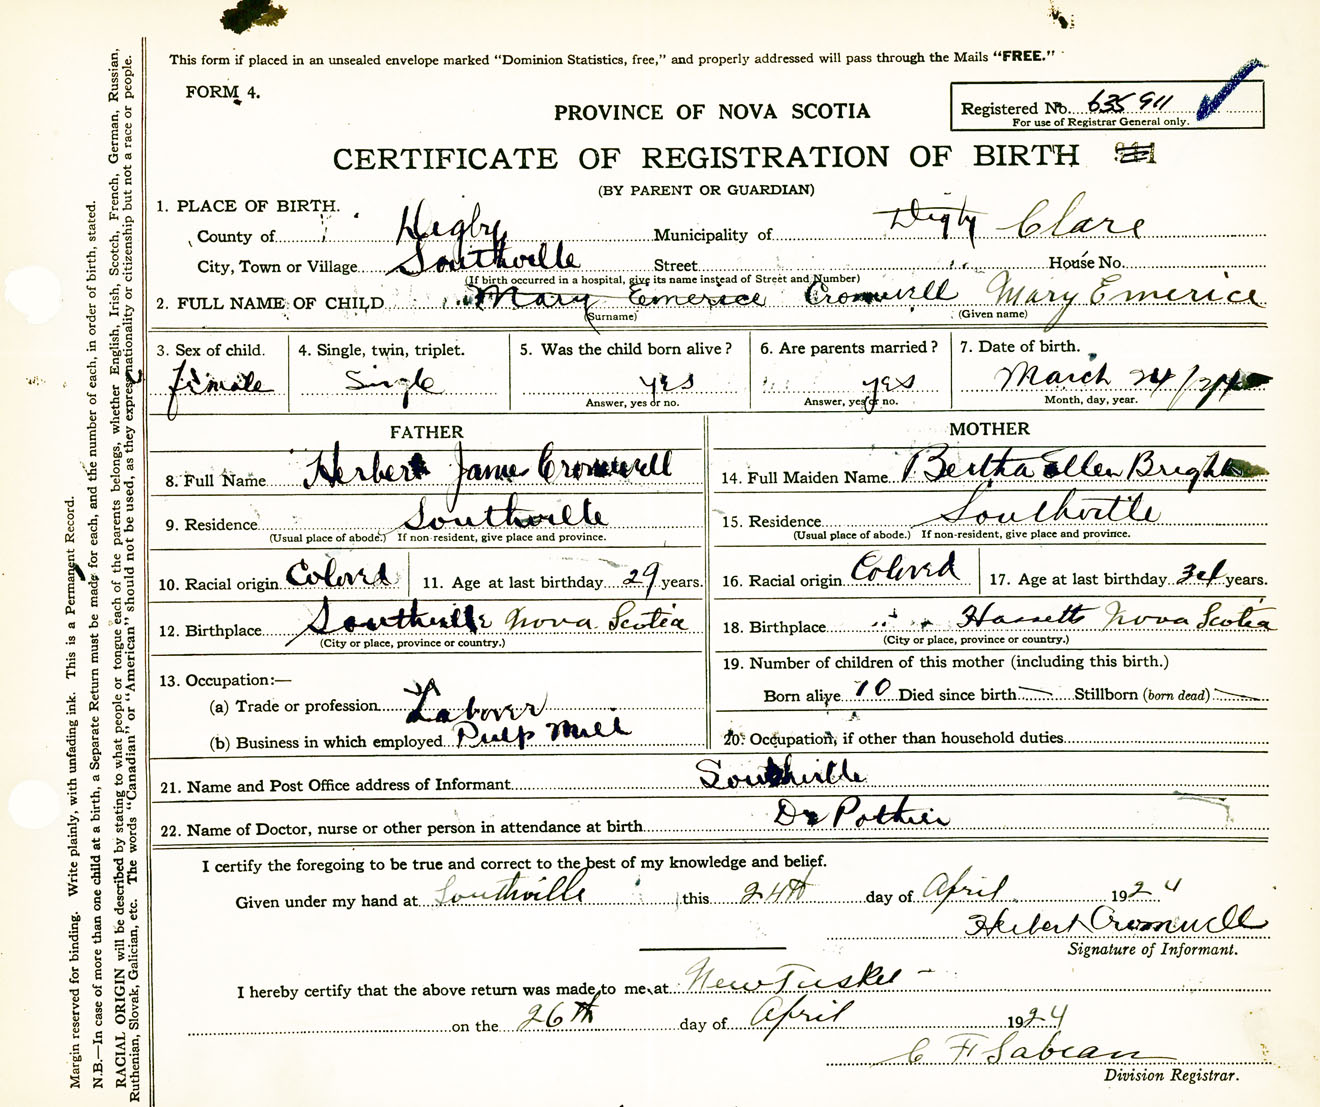 This form if placed in an unsealed envelope marked "Dominion Statistics, free," and properly addressed will pass through the Mails "FREE."
FORM 4.
PROVINCE OF NOVA SCOTIA
Registered No. 635 911
For use of Registrar General only.
CERTIFICATE OF REGISTRATION OF BIRTH
(BY PARENT OR GUARDIAN)
1. PLACE OF BIRTH.
County of Digby Municipality of Digby Clare
City, Town or Village Southville Street House No.
(If birth occurred in a hospital, give its name instead of Street and Number)
2. FULL NAME OF CHILD Mary Emerice Cromwell Mary Emerice
(Surname) (Given name)
3. Sex of child. 4. Single, twin, triplet. 5. Was the child born alive? 6. Are parents married? 7. Date of birth.
female Single yes yes March 24/24
Answer, yes or no. Answer, yes or no. Month, day, year.
FATHER MOTHER
8. Full Name Herbert James Cromwell 14. Full Maiden Name Bertha Ellen Bright
9. Residence Southville 15. Residence Southville
(Usual place of abode.) If non-resident, give place and province. (Usual place of abode.) If non-resident, give place and province.
10. Racial origin Colored 11. Age at last birthday 29 years. 16. Racial origin Colored 17. Age at last birthday 34 years.
12. Birthplace Southville Nova Scotia 18. Birthplace Hassetts Nova Scotia
(City or place, province or country.) (City or place, province or country.)
19. Number of children of this mother (including this birth.)
13. Occupation:—
Born alive 10 Died since birth Stillborn (born dead)
(a) Trade or profession Laborer
(b) Business in which employed Pulp Mill 20. Occupation, if other than household duties
21. Name and Post Office address of Informant Southville
22. Name of Doctor, nurse or other person in attendance at birth Dr Pothier
I certify the foregoing to be true and correct to the best of my knowledge and belief.
Given under my hand at Southville this 24th day of April 1924
Herbert Cromwell
Signature of Informant.
I hereby certify that the above return was made to me at New Tusket
on the 26th day of April 1924
C F Sabean
Division Registrar.
Margin reserved for binding. Write plainly, with unfading ink. This is a Permanent Record.
N.B.—In case of more than one child at a birth, a Separate Return must be made for each, and the number of each, in order of birth, stated.
RACIAL ORIGIN will be described by stating to what people or tongue each of the parents belongs, whether English, Irish, Scotch, French, German, Russian,
Ruthenian, Slovak, Galician, etc. The words "Canadian" or "American" should not be used, as they express nationality or citizenship but not a race or people.